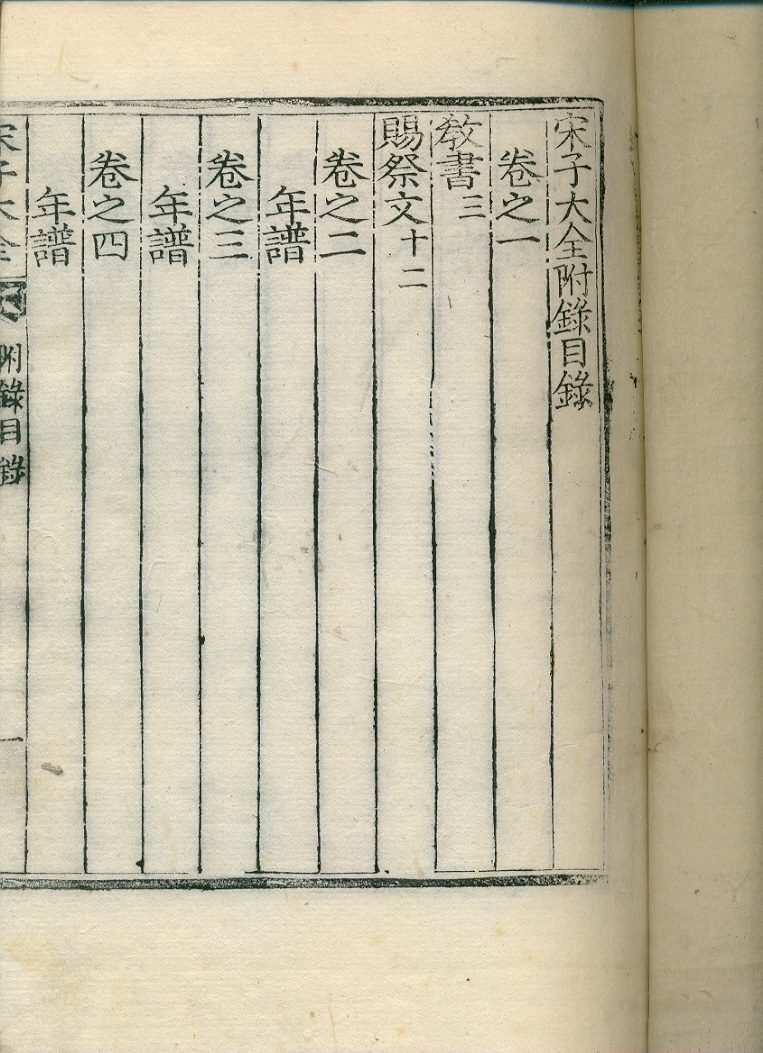 宋子大全附錄目錄
卷之一
敎書三
賜祭文十二
卷之二
年譜
卷之三
年譜
卷之四
年譜
宋子大全 附錄目錄 一